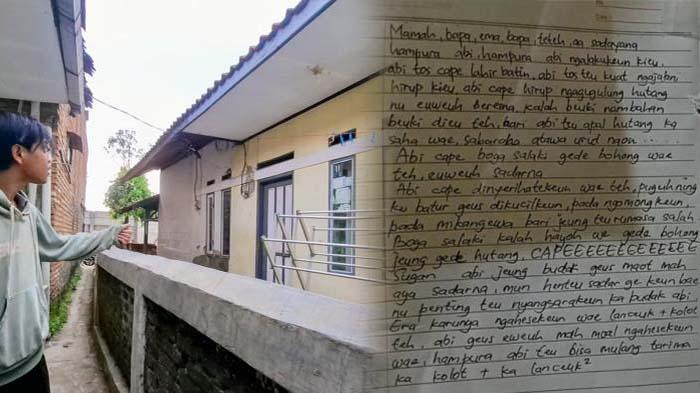 Mamah, bapa, ema, bapa, teteh, aa sadayana
hampura abi, hampura abi ngalakukeun kieu,
abi tos cape lahir batin, abi tos teu kuat ngajalani
hirup kieu, abi cape hirup ngagugulung hutang
nu euweuh beresna, kalah beuki nambahan
beuki dieu teh, bari abi teu apal hutang ka
saha wae, sabaraha atawa urut naon.....
Abi cape boga salaki gede bohong wae
teh, euweuh sadarna
Abi cape wae teh, puguh nog
ku batur geus dikucilkeun, pada ngomongkeun,
pada mikangewa bari jeung teu rumasa salah
Boga salaki kalah hayoh we gede bohong
jeung gede hutang, CAPEEEEEEEEEEEEE
Sugan abi jeung budak geus maot mah
aya sadarna, mun henteu sadar ge keun bae
nu penting teu nyangsarakeun ka budak abi
Era karunya ngahesekeun wae lanceuk + kolot
teh, abi geus euweuh mah moal ngahesekeun
wae, hampura abi teu bisa mulang tarima
ka kolot + ka lanceuk²